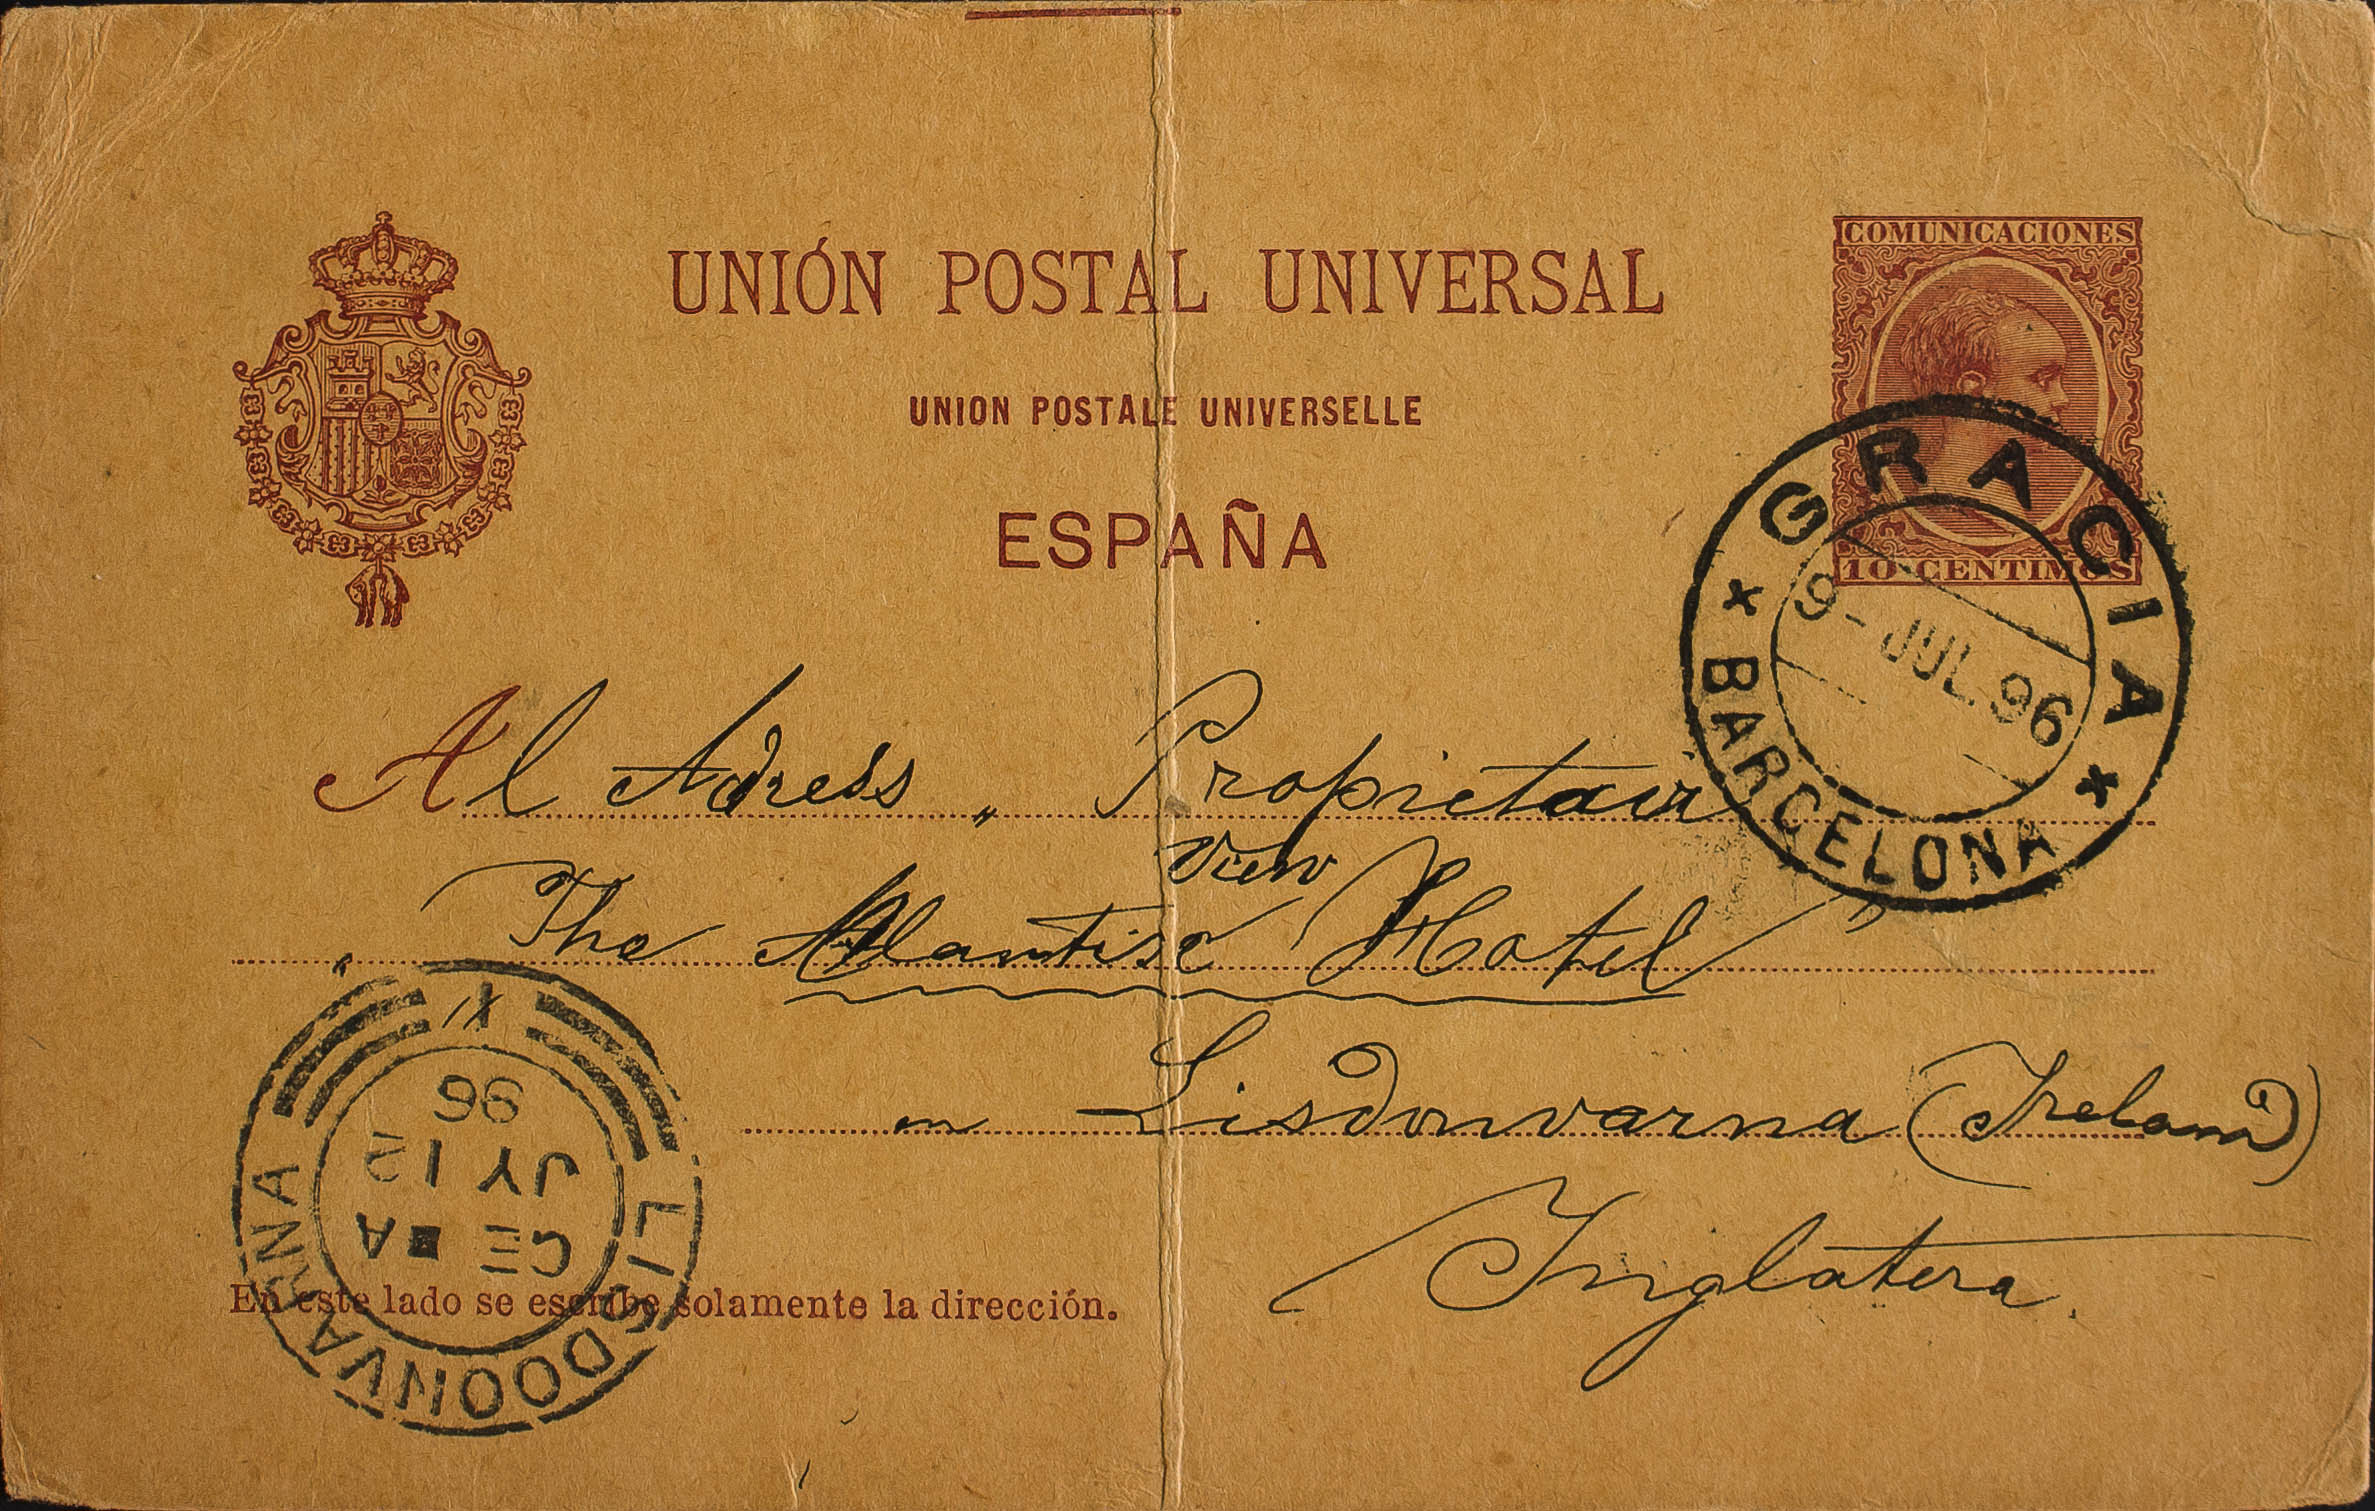 UNIÓN POSTAL UNIVERSAL
COMUNICACIONES
UNION POSTALE UNIVERSELLE
ESPAÑA
10 CENTIMOS
GRACIA
9 - JUL. 96
* BARCELONA *
Al Adress „ Propietair
View
The Atlantic Hotel "
en Lisdonvarna (Ireland)
Inglatera.
LISDOONVARNA
CE ■ A
JY 12
96
En este lado se escribe solamente la dirección.